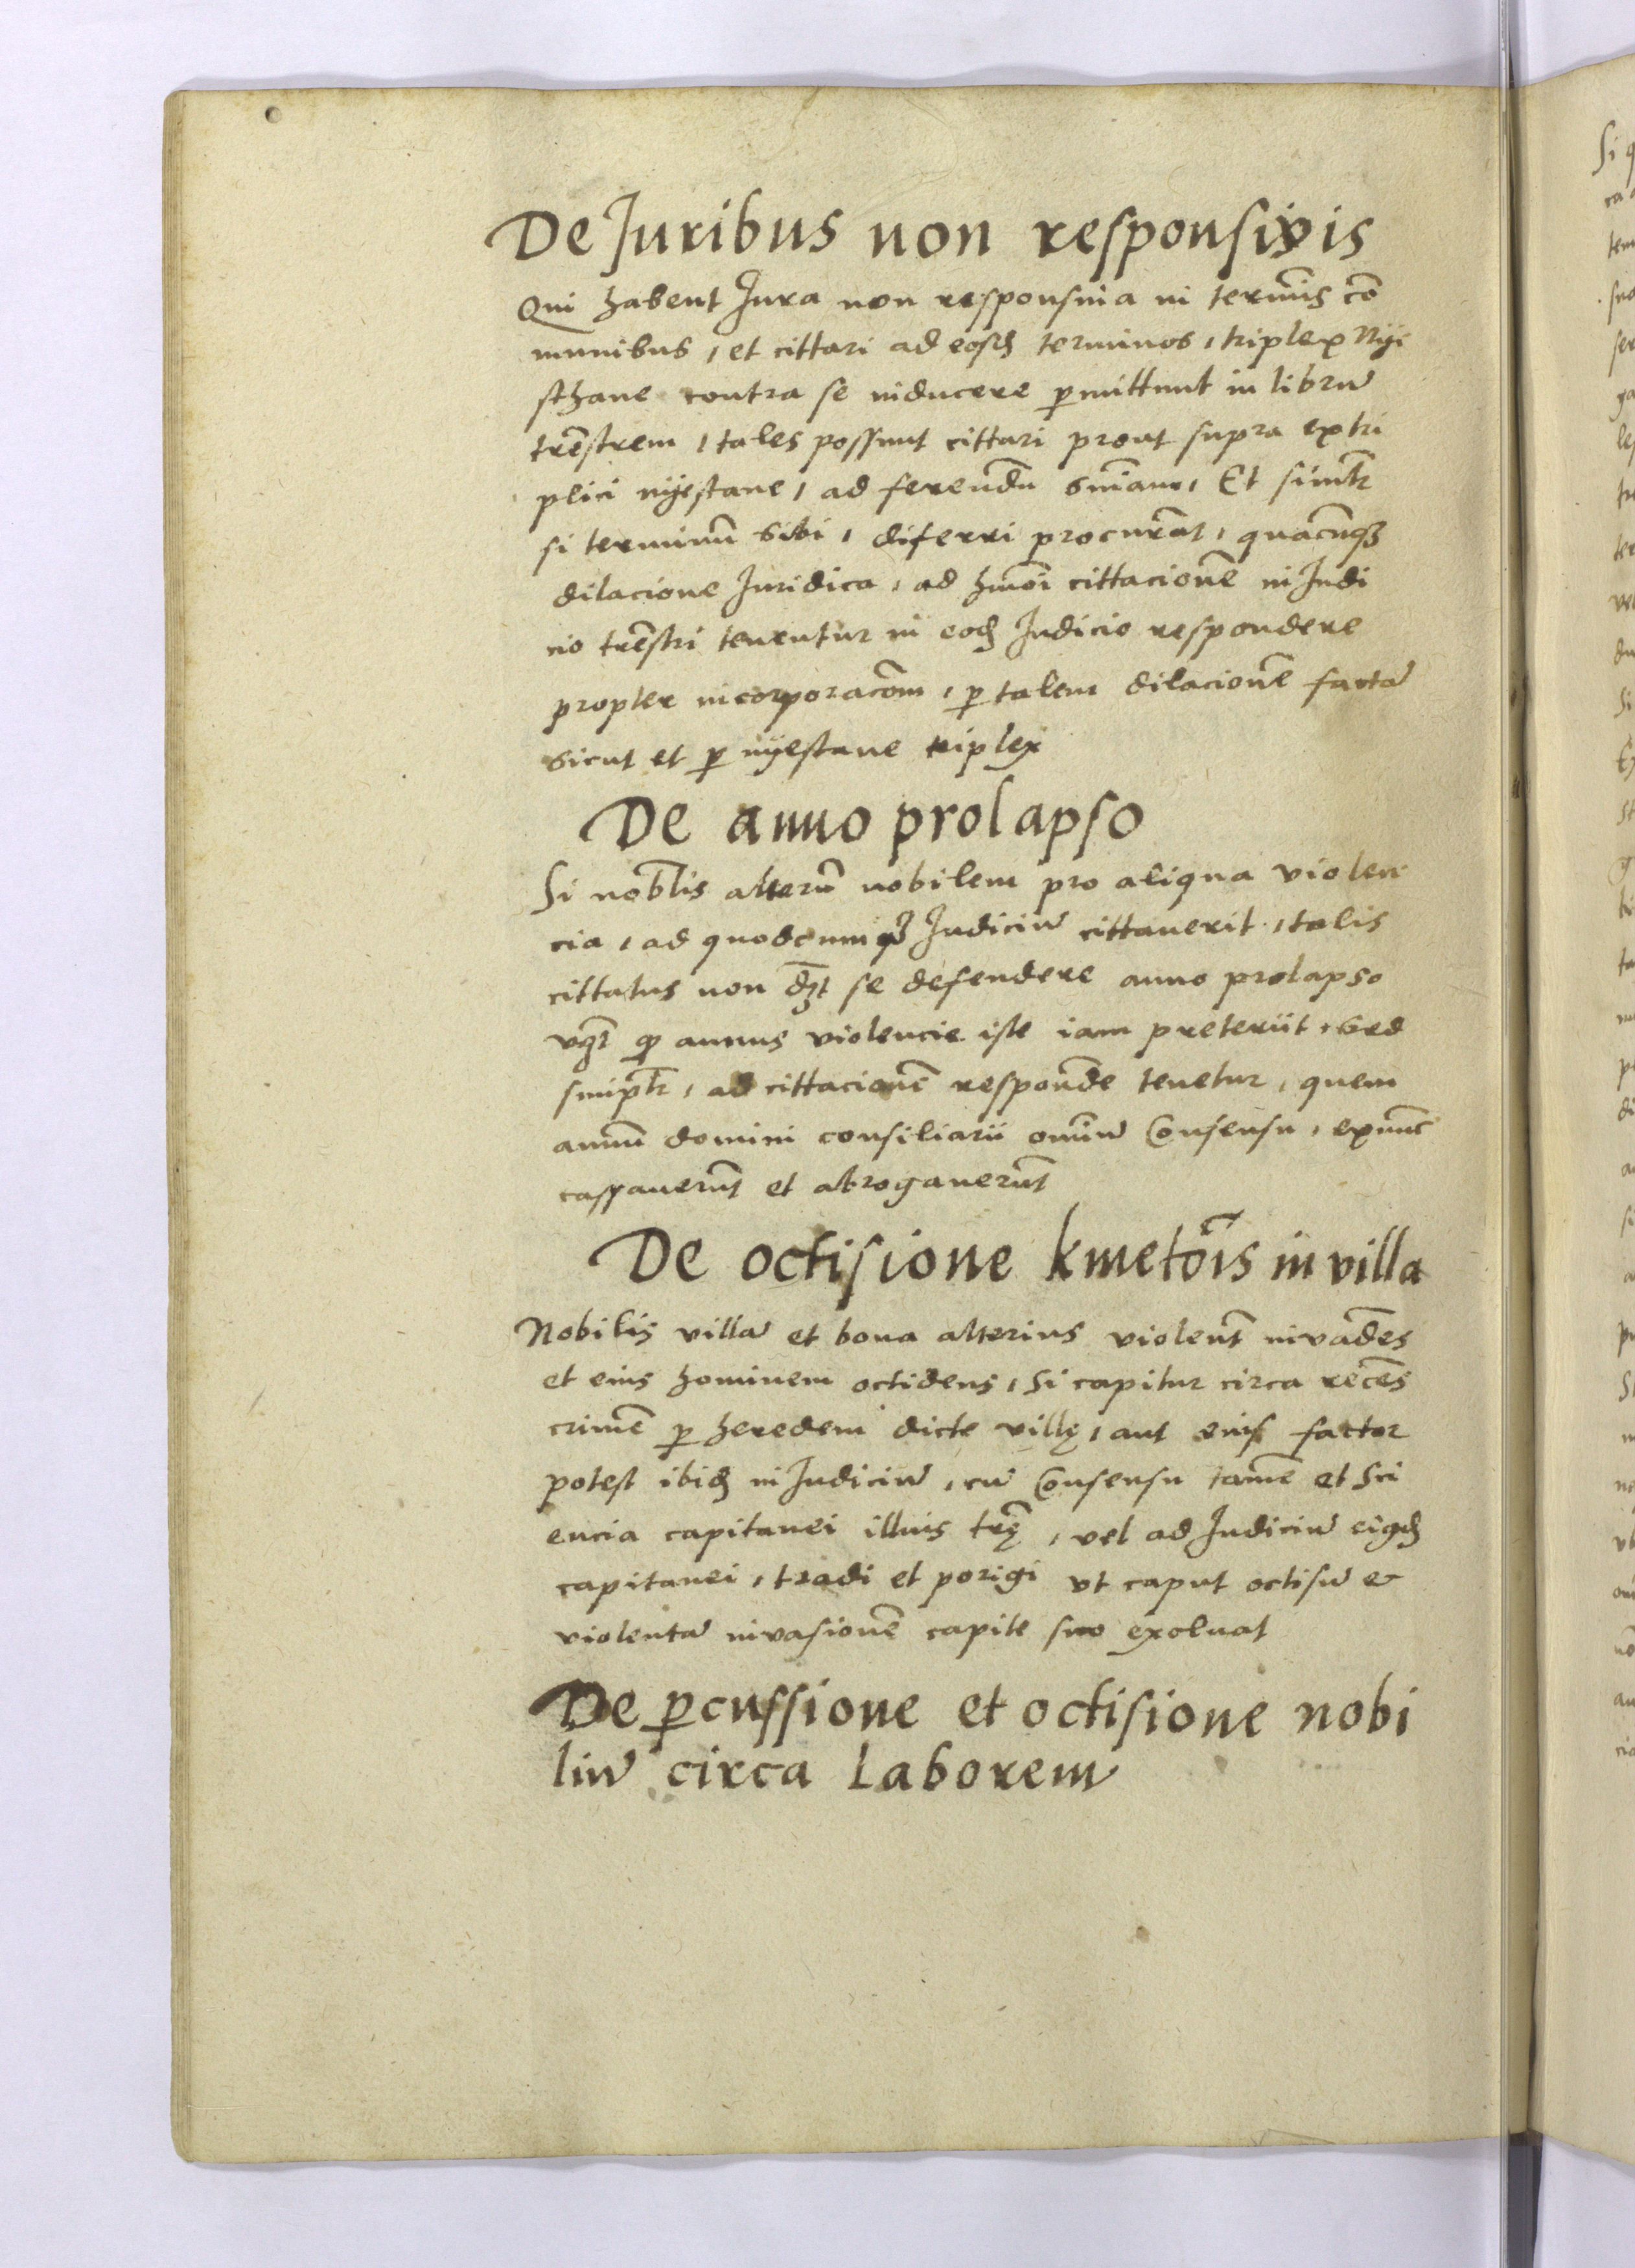 De Juribus non responsivis
Qui habent Jura non responsiua in termīs cō
munibus, et cittari ad eosdē terminos, triplex Nye
sthane contra se inducere ꝑmittunt in librū
trēstrem, tales possunt cittari prout supra ex tri
plici nyestane, ad ferendū sniam, Et simlr̄
si terminū sibi, diferri procurāt, quacūqꝫ
dilacione Juridica, ad hmōi cittacionē in Judi
cio trēstri tenentur in eodē Judicio respondere
propter incorporacōm, ꝑ talem dilacionē factā
sicut et ꝑ nyestane triplex
De anno prolapso
Si nobĪis alterū nobilem pro aliqua violen
cia, ad quodcumqꝫ Judiciū cittauerit, talis
cittatus non dꝫt se defendere anno prolapso
vꝫ ꝙ annus violencie iste iam preteriit, Sed
smiplr̄, ad cittacionē respondē tenetur, quem
annū domini consiliarii omniū Consensu, exnunc
cassauerūt et abrogauerūt
De octisione kmetōis in villa
Nobilis villā et bona alterius violent̄ invadēs
et eius hominem octidens, Si capitur circa recēs
crimē ꝑ heredem dicte villę, aut eius factor
potest ibidē in Judiciū, cū Consensu tamē et Sci
encia capitanei illius trę̄, vel ad Judiciū eiꝰdē
capitanei, tradi et porigi vt caput octisū et
violentā invasionē capite suo exoluat
De ꝑcussione et octisione nobi
liū circa Laborem